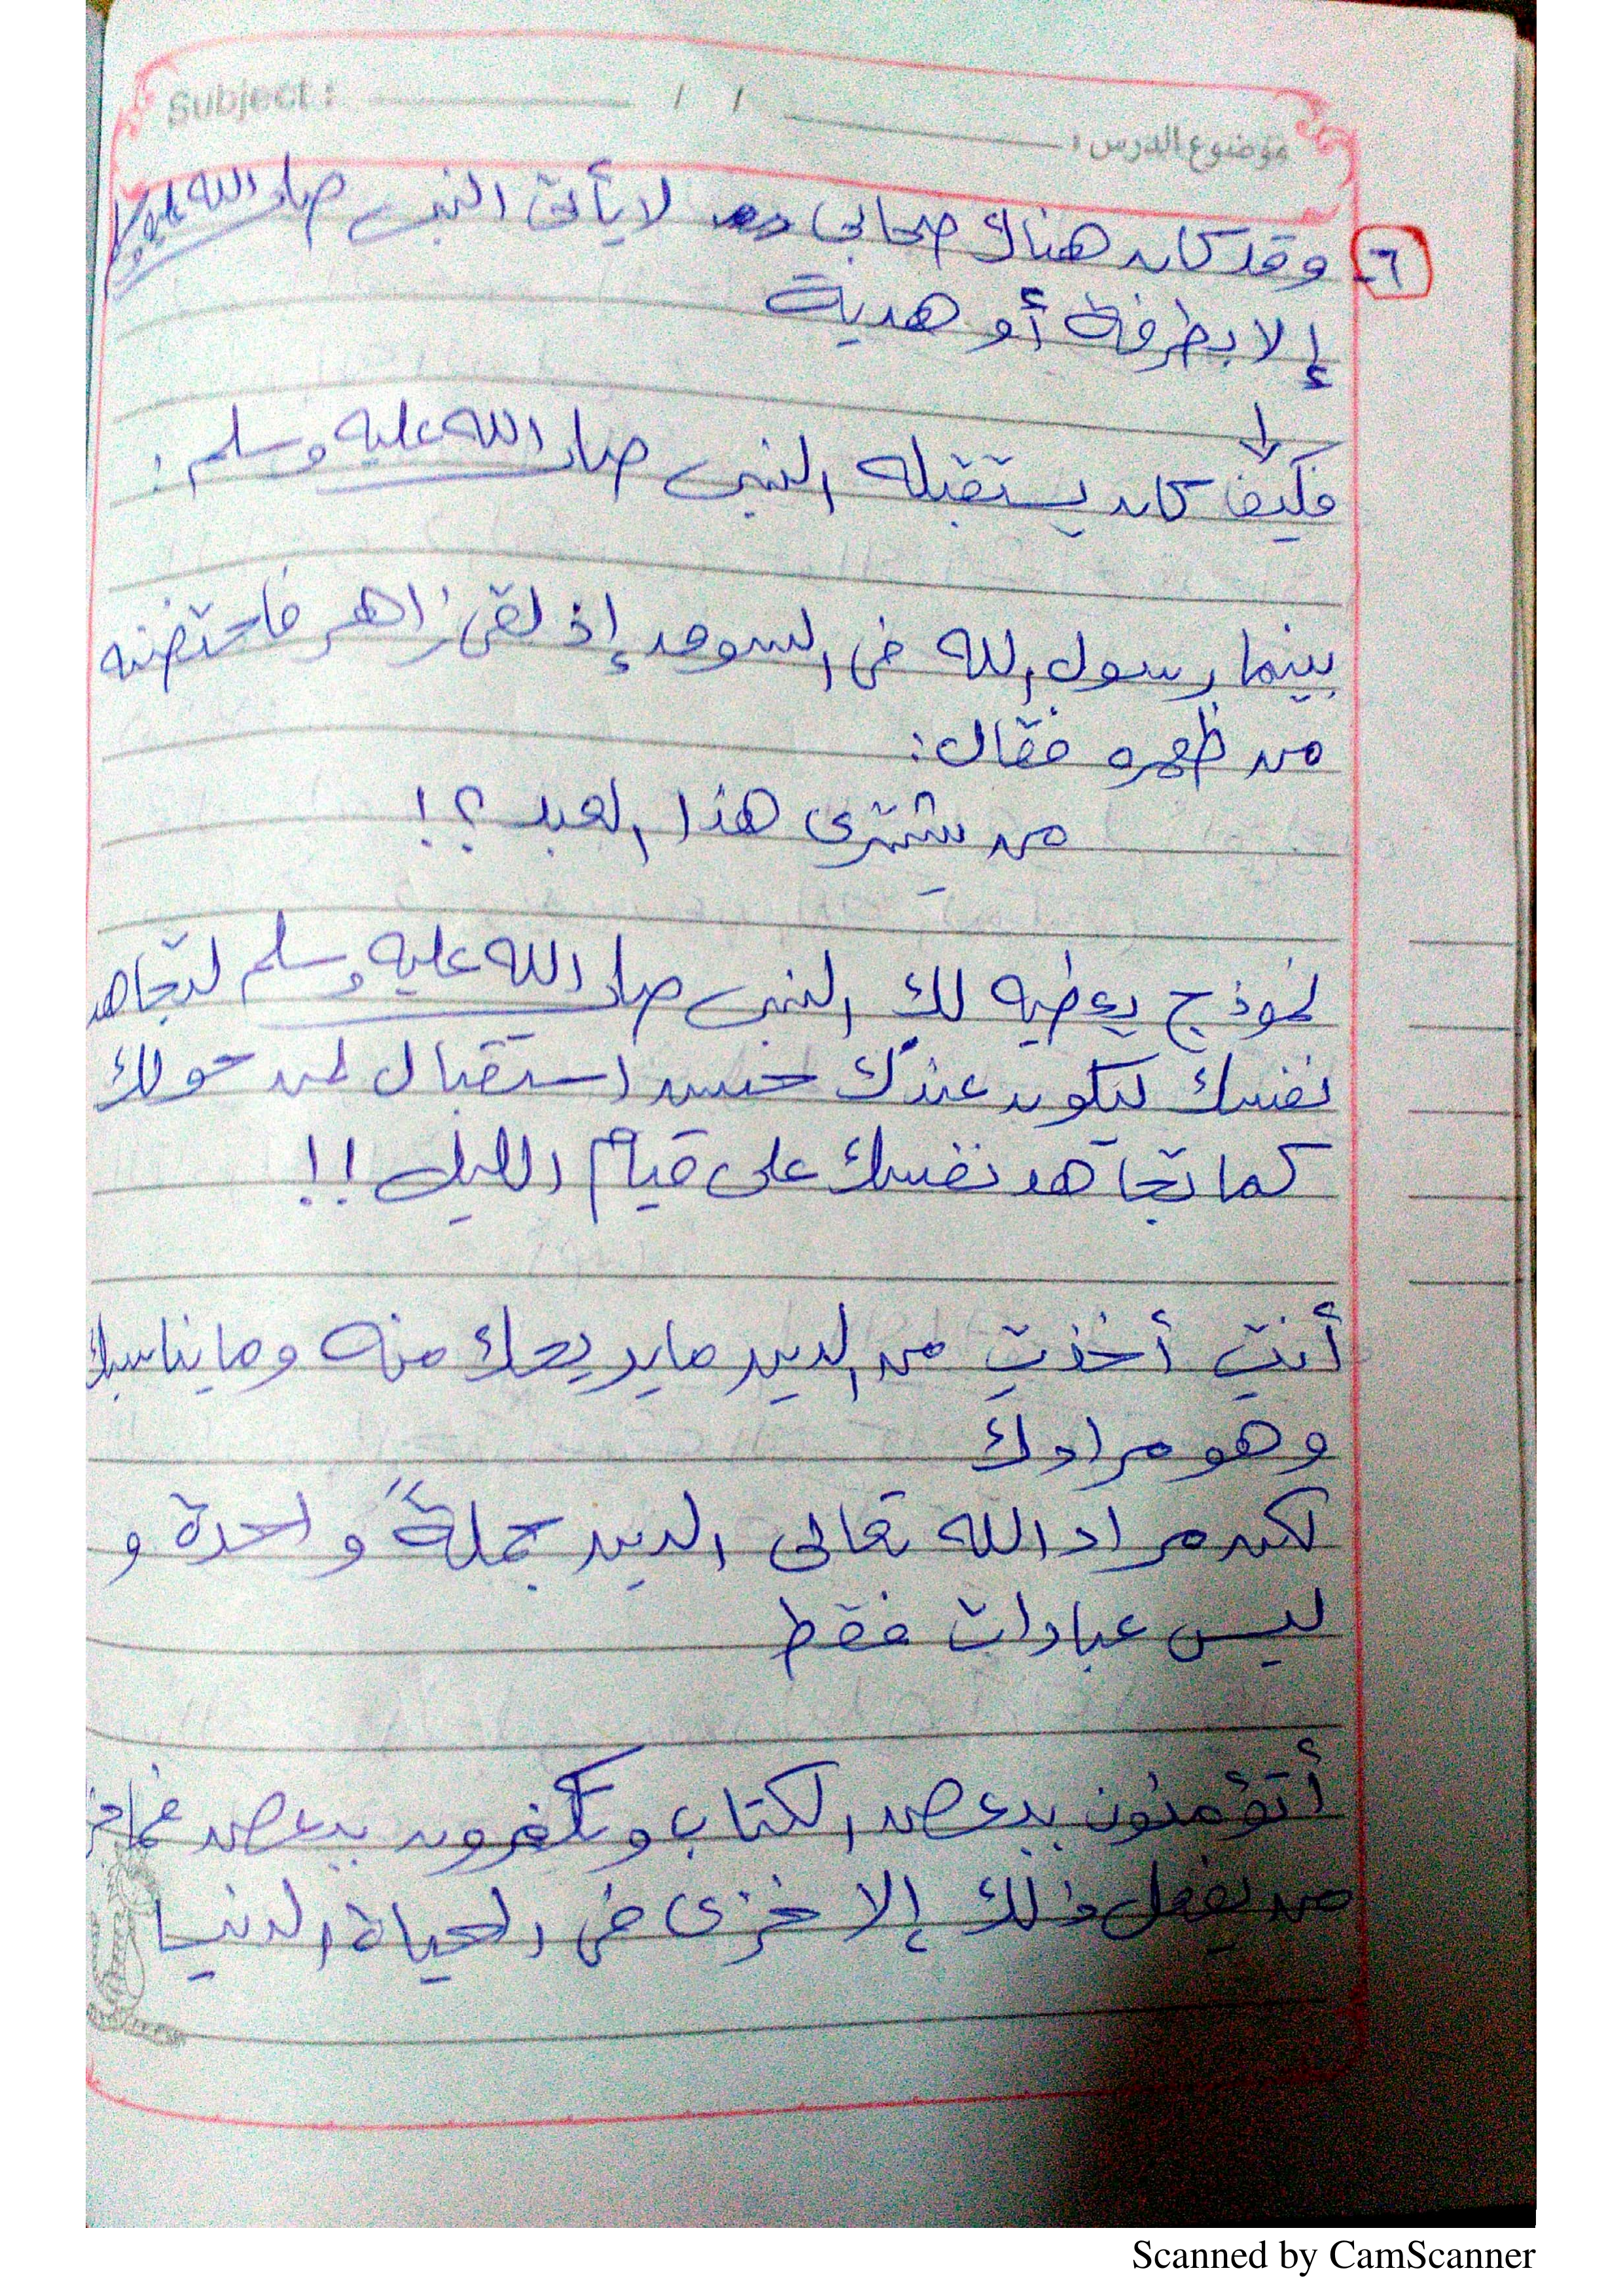 Subject :
/ /
موضوع الدرس :
٦- وقد كان هناك صحابي لا يأتى النبى صلى الله عليه وسلم
إلا بطرفة أو هدية
↓
فكيف كان يستقبله النبى صلى الله عليه وسلم :
بينما رسول الله فى السوق إذ لقى زاهر فاحتضنه
من ظهره فقال :
من يشترى هذا العبد ؟!
نموذج يعطيه لك النبى صلى الله عليه وسلم لتجاهد
نفسك ليكون عندك حسن استقبال لمن حولك
كما تجاهد نفسك على قيام الليل !!
أنتِ أخذتِ من الدين ما يريحك منه وما يناسبك
وهو مرادك
لكن مراد الله تعالى الدين جملةً واحدة و
ليس عبادات فقط
أتؤمنون ببعض الكتاب وتكفرون ببعض فما جز
من يفعل ذلك إلا خزى فى الحياة الدنيا
Scanned by CamScanner